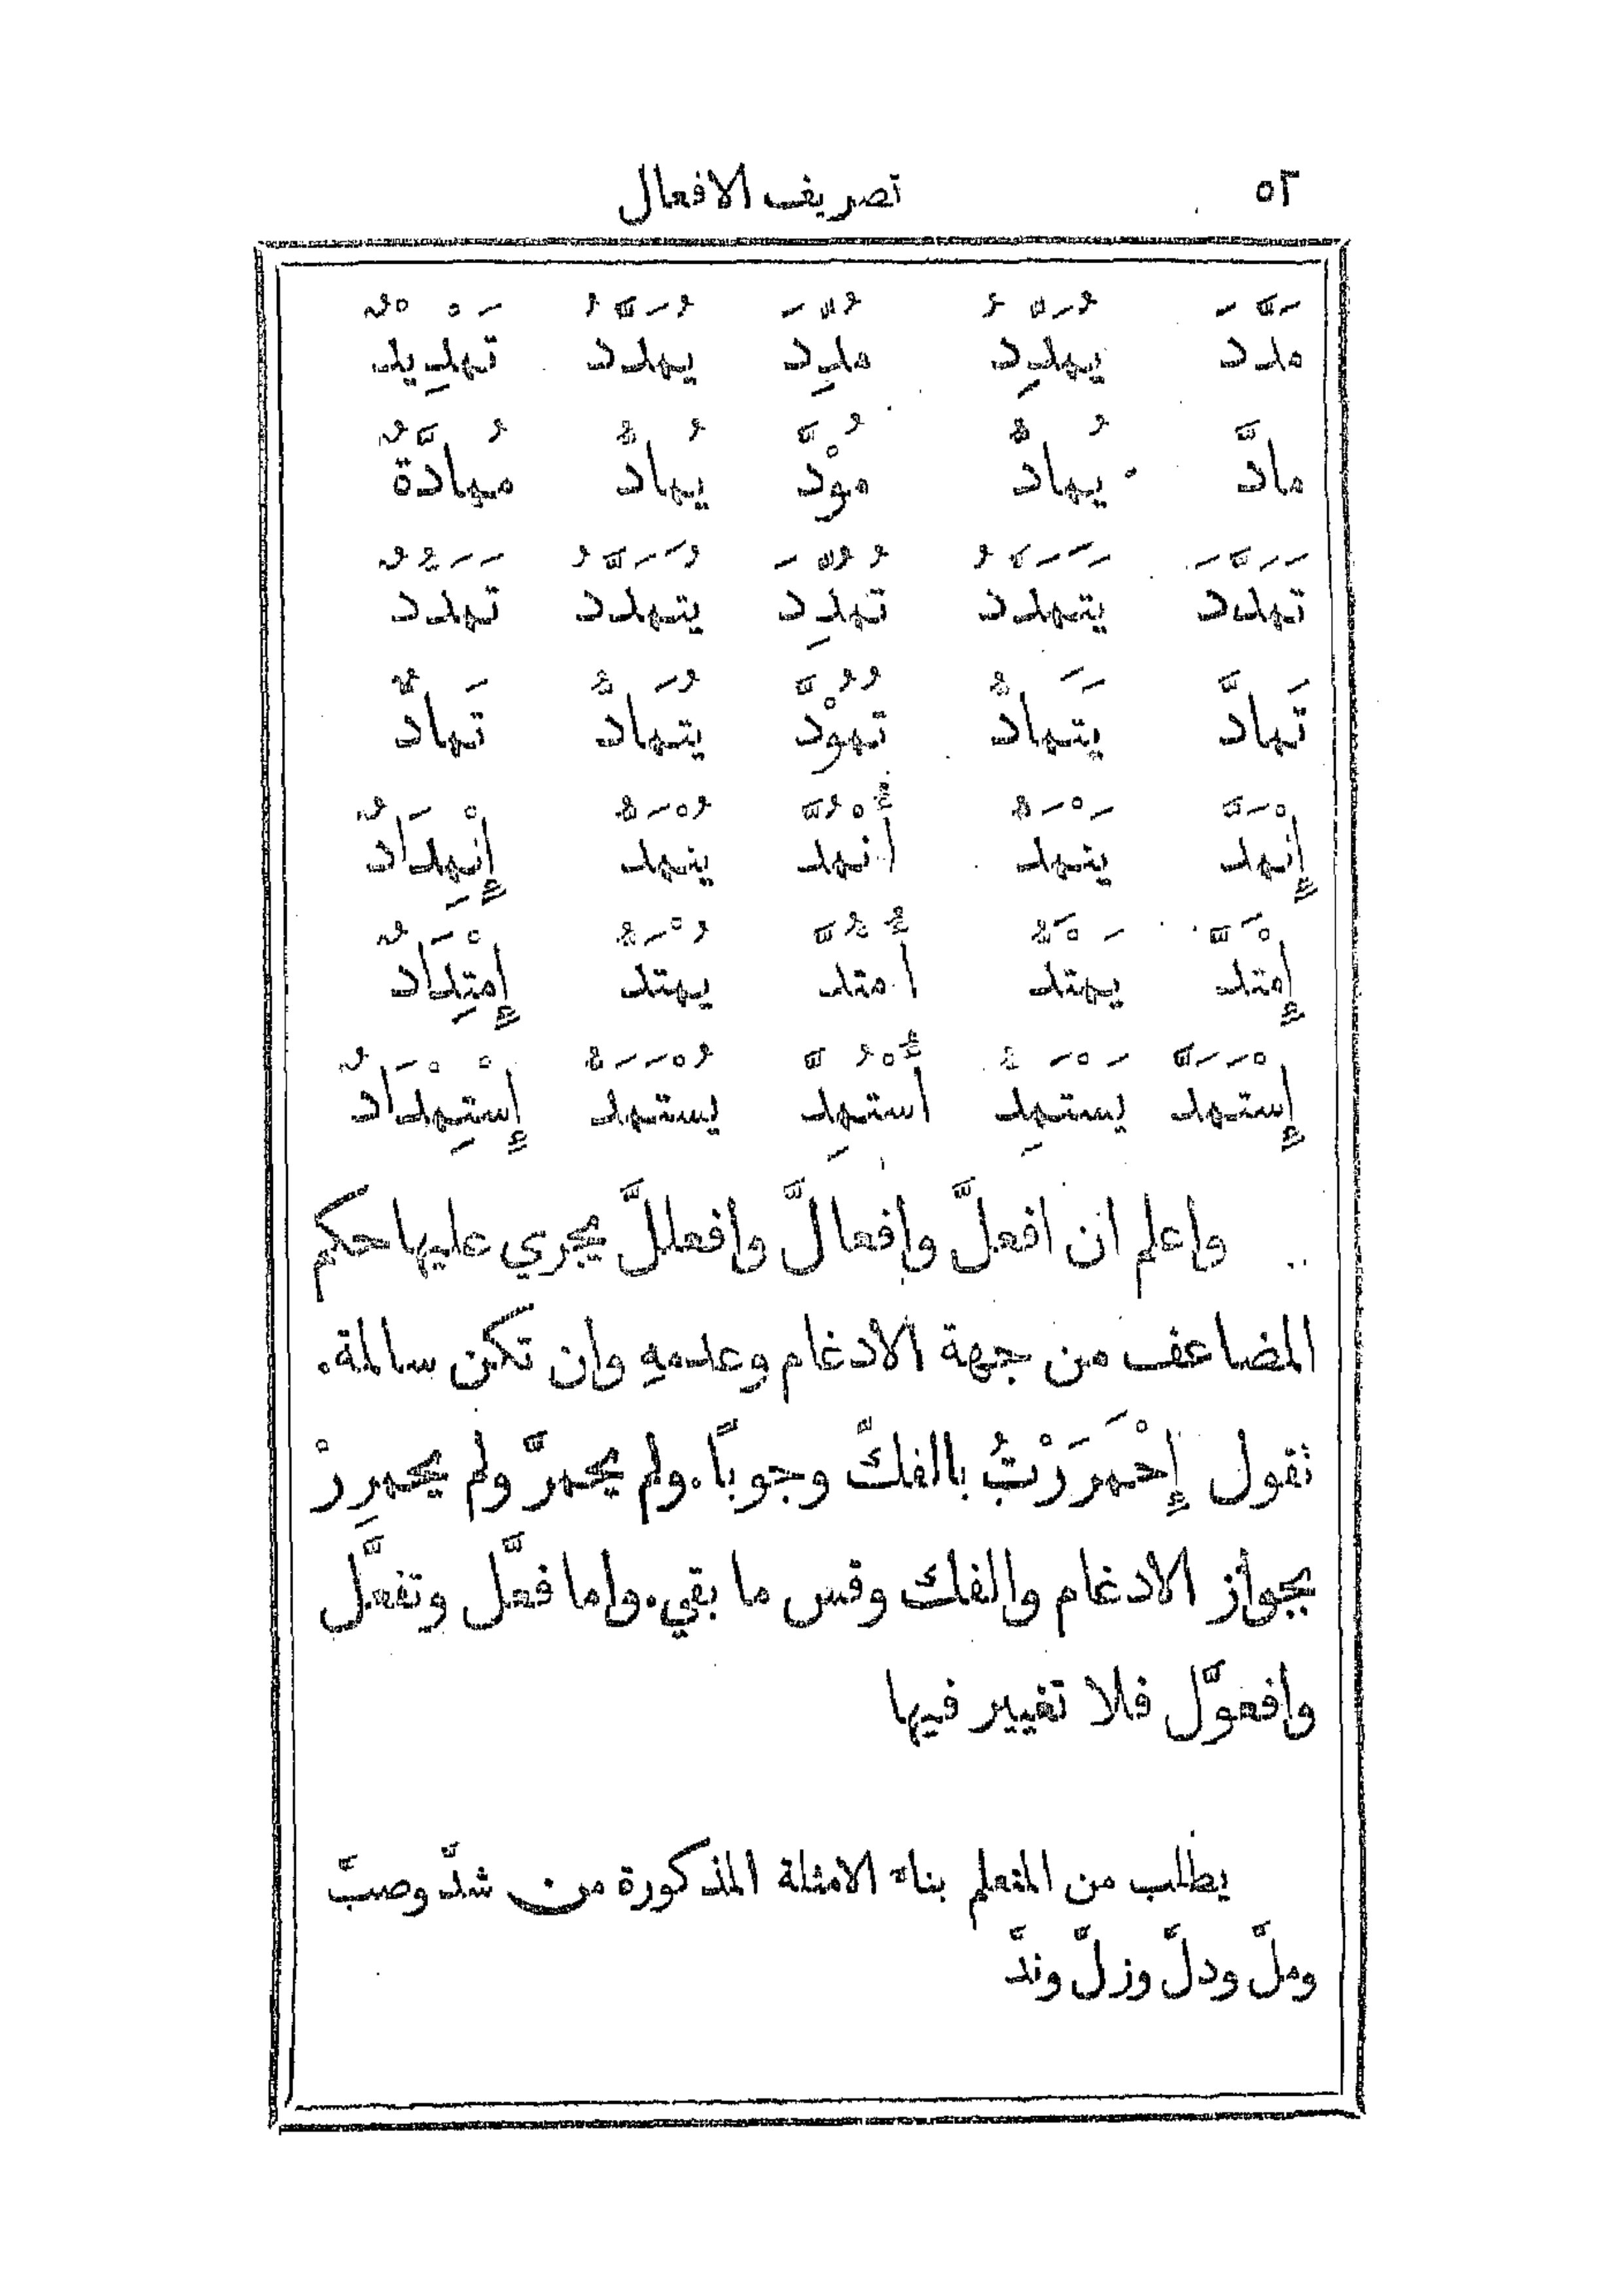 ٥٢ تصريف الافعال
مَدَّدَ يُمَدِّدُ مُدِّدَ يُمَدَّدُ تَمْدِيْدٌ
مادَّ يُمادُّ مُوْدَّ يُمادُّ مُمادَّةٌ
تَمَدَّدَ يَتَمَدَّدُ تُمُدِّدَ يُتَمَدَّدُ تَمَدُّدٌ
تَمادَّ يَتَمادُّ تُمُوْدَّ يُتَمادُّ تَمادٌّ
إِنْمَدَّ يَنْمَدُّ أُنْمُدَّ يُنْمَدُّ إِنْمِدَادٌ
إِمْتَدَّ يَمْتَدُّ أُمْتُدَّ يُمْتَدُّ إِمْتِدَادٌ
إِسْتَمَدَّ يَسْتَمِدُّ أُسْتُمِدَّ يُسْتَمَدُّ إِسْتِمْدَادٌ
واعلم ان افعلَّ وافعالَّ وافعللَّ يجري عليها حكم
المضاعف من جهة الادغام وعدمهِ وان تكن سالمة.
تقول إِحْمَرَرْتُ بالفكّ وجوبًا. ولم يحمرَّ ولم يحمرِرْ
بجواز الادغام والفك وقس ما بقي. واما فعَّل وتفعَّل
وافعوَّل فلا تغيير فيها
يطلب من المتعلم بناء الامثلة المذكورة من شدَّ وصبَّ
وملَّ ودلَّ وزلَّ وندَّ